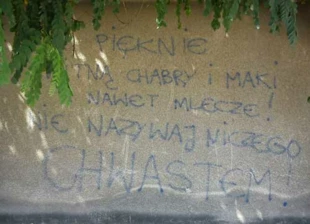 PIĘKNIE
TNĄ CHABRY i MAKi
NAWET MLECZE!
NIE NAZYWAJ NICZEGO
CHWASTEM!